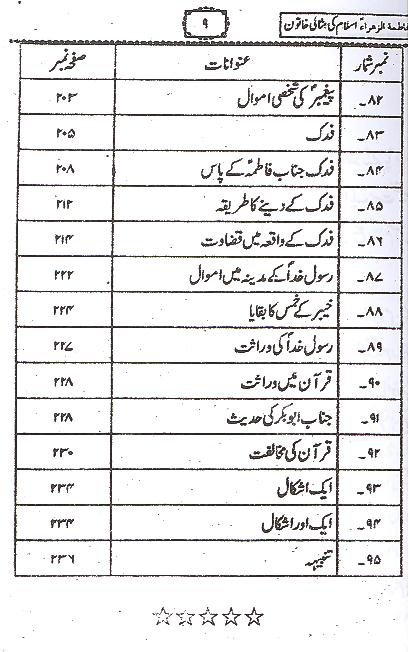 فاطمۃ الزہراء اسلام کی مثالی خاتون ۹
نمبر شمار عنوانات صفحہ نمبر
۸۲۔ پیغمبرؐ کی شخصی اموال ۲۰۳
۸۳۔ فدک ۲۰۵
۸۴۔ فدک جناب فاطمہؑ کے پاس ۲۰۸
۸۵۔ فدک کے دینے کا طریقہ ۲۱۲
۸۶۔ فدک کے واقعہ میں قضاوت ۲۱۴
۸۷۔ رسول خداؐ کے مدینہ میں اموال ۲۲۲
۸۸۔ خیبر کے خمس کا بقایا ۲۲۴
۸۹۔ رسول خداؐ کی وراثت ۲۲۷
۹۰۔ قرآن میں وراثت ۲۲۸
۹۱۔ جناب ابوبکر کی حدیث ۲۲۸
۹۲۔ قرآن کی مخالفت ۲۳۰
۹۳۔ ایک اشکال ۲۳۴
۹۴۔ ایک اور اشکال ۲۳۴
۹۵۔ تنبیہہ ۲۳۶